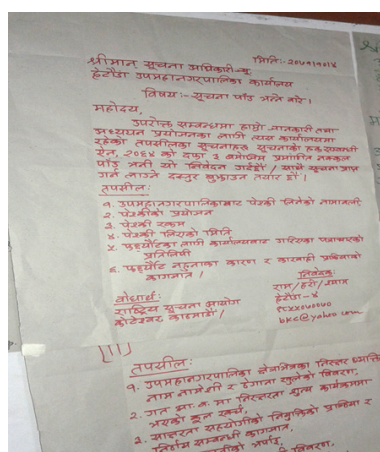 मिति:- २०७१।१०।४
श्रीमान् सूचना अधिकारी ज्यू
हेटौंडा उपमहानगरपालिका कार्यालय
विषय:- सूचना पाँउ भन्ने बारे।
महोदय,
उपरोक्त सम्बन्धमा हाम्रो जानकारी तथा
अध्ययन प्रयोजनका लागि त्यस कार्यालयमा
रहेको तपसीलका सूचनाहरु सूचनाको हकसम्बन्धी
ऐन, २०६४ को दफा ३ बमोजिम प्रमाणित नक्कल
पाँउ भनी यो निवेदन गर्दछौं। साथै सूचना प्राप्त
गर्न लाग्ने दस्तुर बुझाउन तयार छौं।
तपसील:
१. उपमहानगरपालिकाबाट पेश्की लिनेको नामावली
२. पेश्कीको प्रयोजन
३. पेश्की रकम
४. पेश्की लिएको मिति
५. फर्छ्यौटका लागि कार्यालयबाट गरिएका पत्राचारको
प्रतिलिपी
६. फर्छ्यौट नहुनाका कारण र कारवाही प्रक्रियाको
कागजात।
निवेदक:
राम/हरी/श्याम
हेटौंडा-४
bkc@yahoo.com
बोधार्थ:
राष्ट्रिय सूचना आयोग
कोटेश्वर, काठमाडौं।
[II]
तपसील:
१. उपमहानगरपालिका क्षेत्रभित्रका निरक्षर
नाम नामेसी र ठेगाना खुलेको विवरण,
२. गत आ.व. मा निरक्षरता शुन्य कार्यक्रममा
भएको कूल खर्च,
३. साक्षरता सहयोगीको नियुक्तिको प्रक्रिया र
निर्णय सम्बन्धी कागजात,
विवरण,